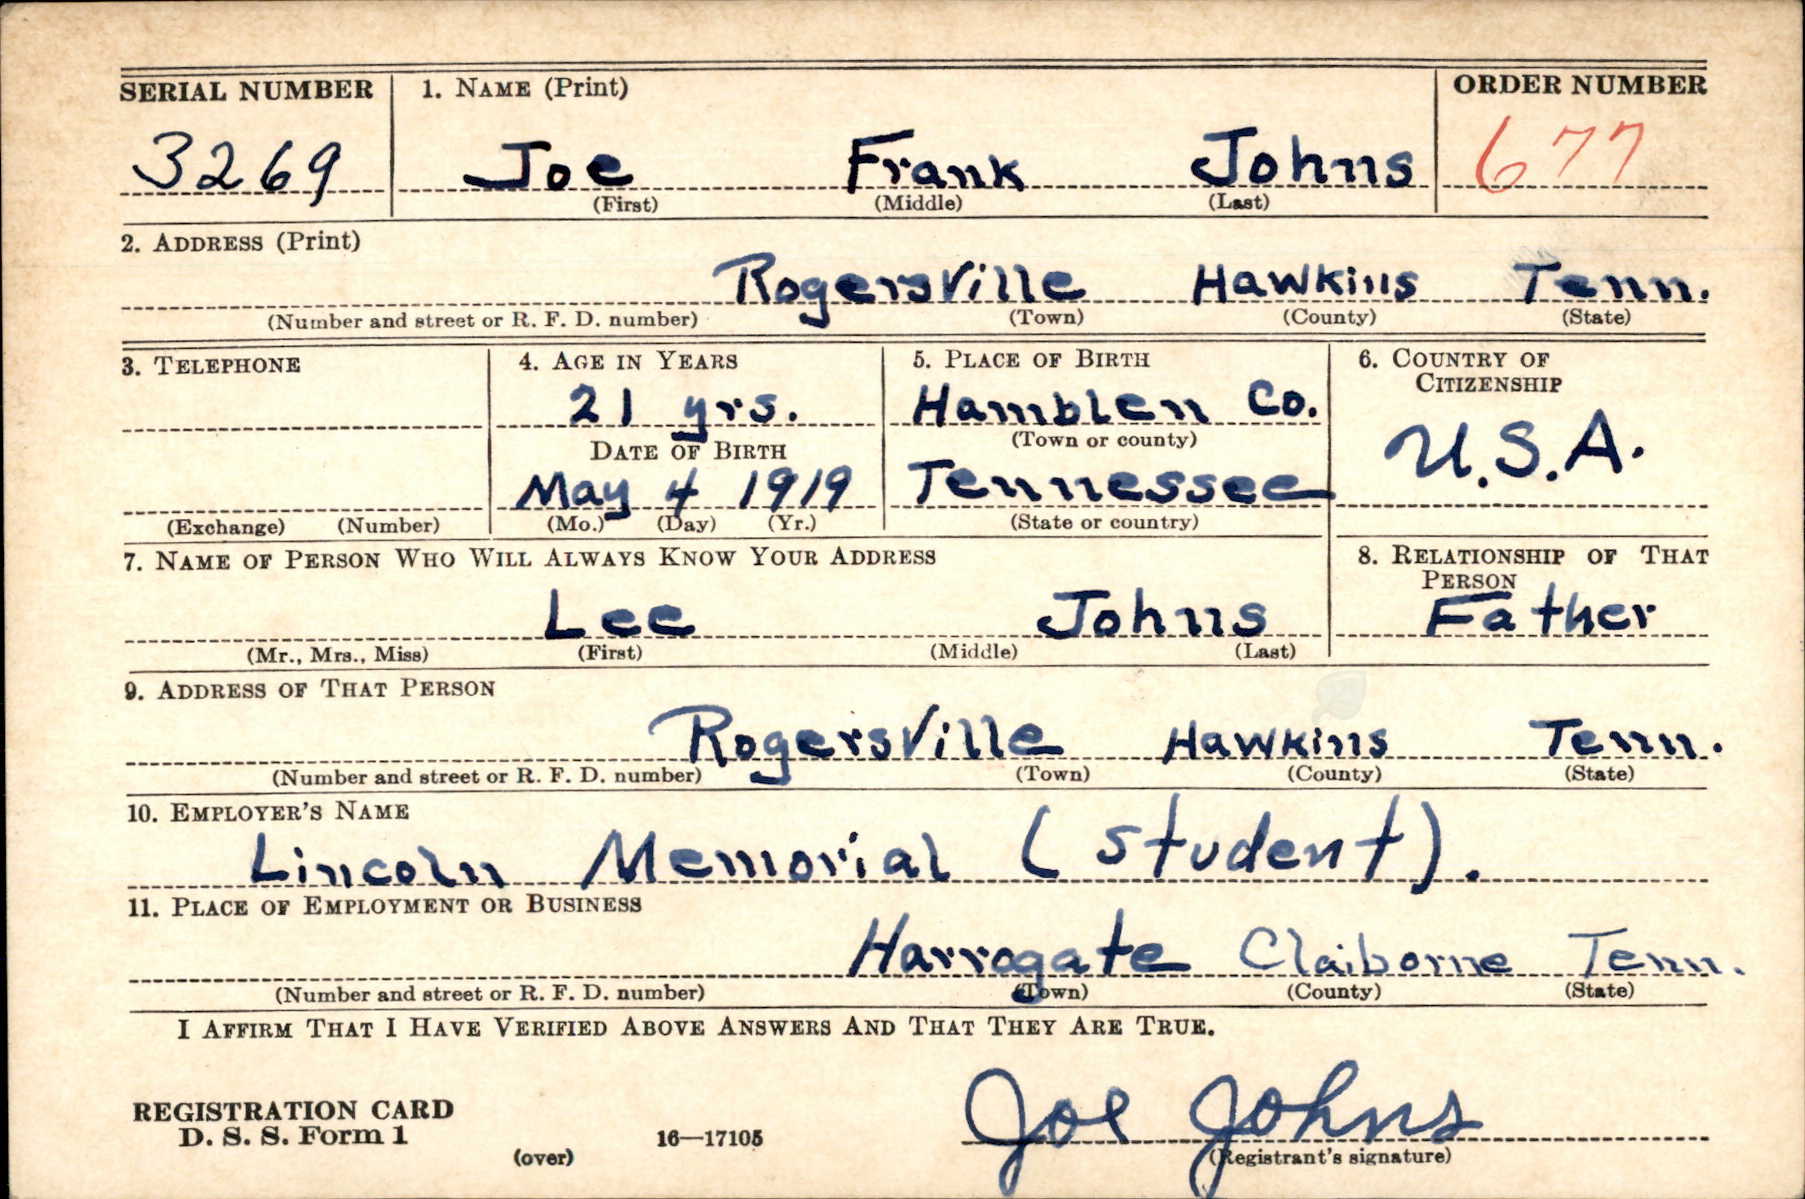 SERIAL NUMBER 1. NAME (Print) ORDER NUMBER
3269 Joe Frank Johns 677
(First) (Middle) (Last)
2. ADDRESS (Print)
Rogersville Hawkins Tenn.
(Number and street or R. F. D. number) (Town) (County) (State)
3. TELEPHONE 4. AGE IN YEARS 5. PLACE OF BIRTH 6. COUNTRY OF
CITIZENSHIP
21 yrs. Hamblen Co.
DATE OF BIRTH (Town or county) U.S.A.
May 4 1919 Tennessee
(Exchange) (Number) (Mo.) (Day) (Yr.) (State or country)
7. NAME OF PERSON WHO WILL ALWAYS KNOW YOUR ADDRESS 8. RELATIONSHIP OF THAT
PERSON
Lee Johns Father
(Mr., Mrs., Miss) (First) (Middle) (Last)
9. ADDRESS OF THAT PERSON
Rogersville Hawkins Tenn.
(Number and street or R. F. D. number) (Town) (County) (State)
10. EMPLOYER'S NAME
Lincoln Memorial (student).
11. PLACE OF EMPLOYMENT OR BUSINESS
Harrogate Claiborne Tenn.
(Number and street or R. F. D. number) (Town) (County) (State)
I AFFIRM THAT I HAVE VERIFIED ABOVE ANSWERS AND THAT THEY ARE TRUE.
REGISTRATION CARD
D. S. S. Form 1 Joe Johns
(over) 16—17105 (Registrant's signature)